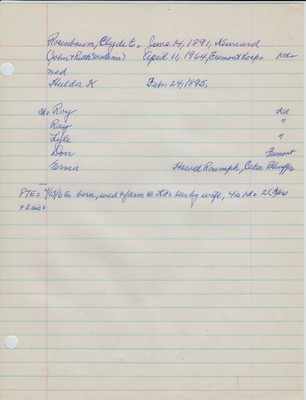 Rosenbaum, Clyde E. June 14, 1891, Kennard
(John & Ruth April 11, 1964, Fremont hosp.
med
Hulda K Febr. 24, 1895,
ch: Roy Kd
Ray "
Lyle "
Don Fremont
Erma Harold Roumph, Cedar Bluffs
PTE= 4/13/65 born, med & farm @ Kd= sur by wife, 4s 1d= 2(
& 2 sis=